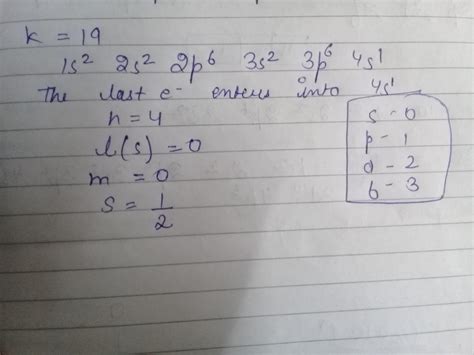 K = 19
1s² 2s² 2p⁶ 3s² 3p⁶ 4s¹
The last e⁻ enters into 4s¹
n = 4
l(s) = 0
m = 0
s = 1/2
s - 0
p - 1
d - 2
f - 3